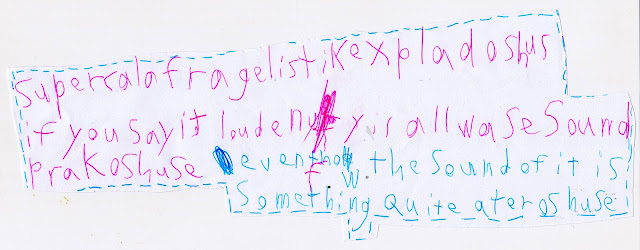 supercalafragelistikexpladoshus
if you say it loud enyf y is allwase sound
prakoshuse even thow the sound of it is
something quite ateroshuse